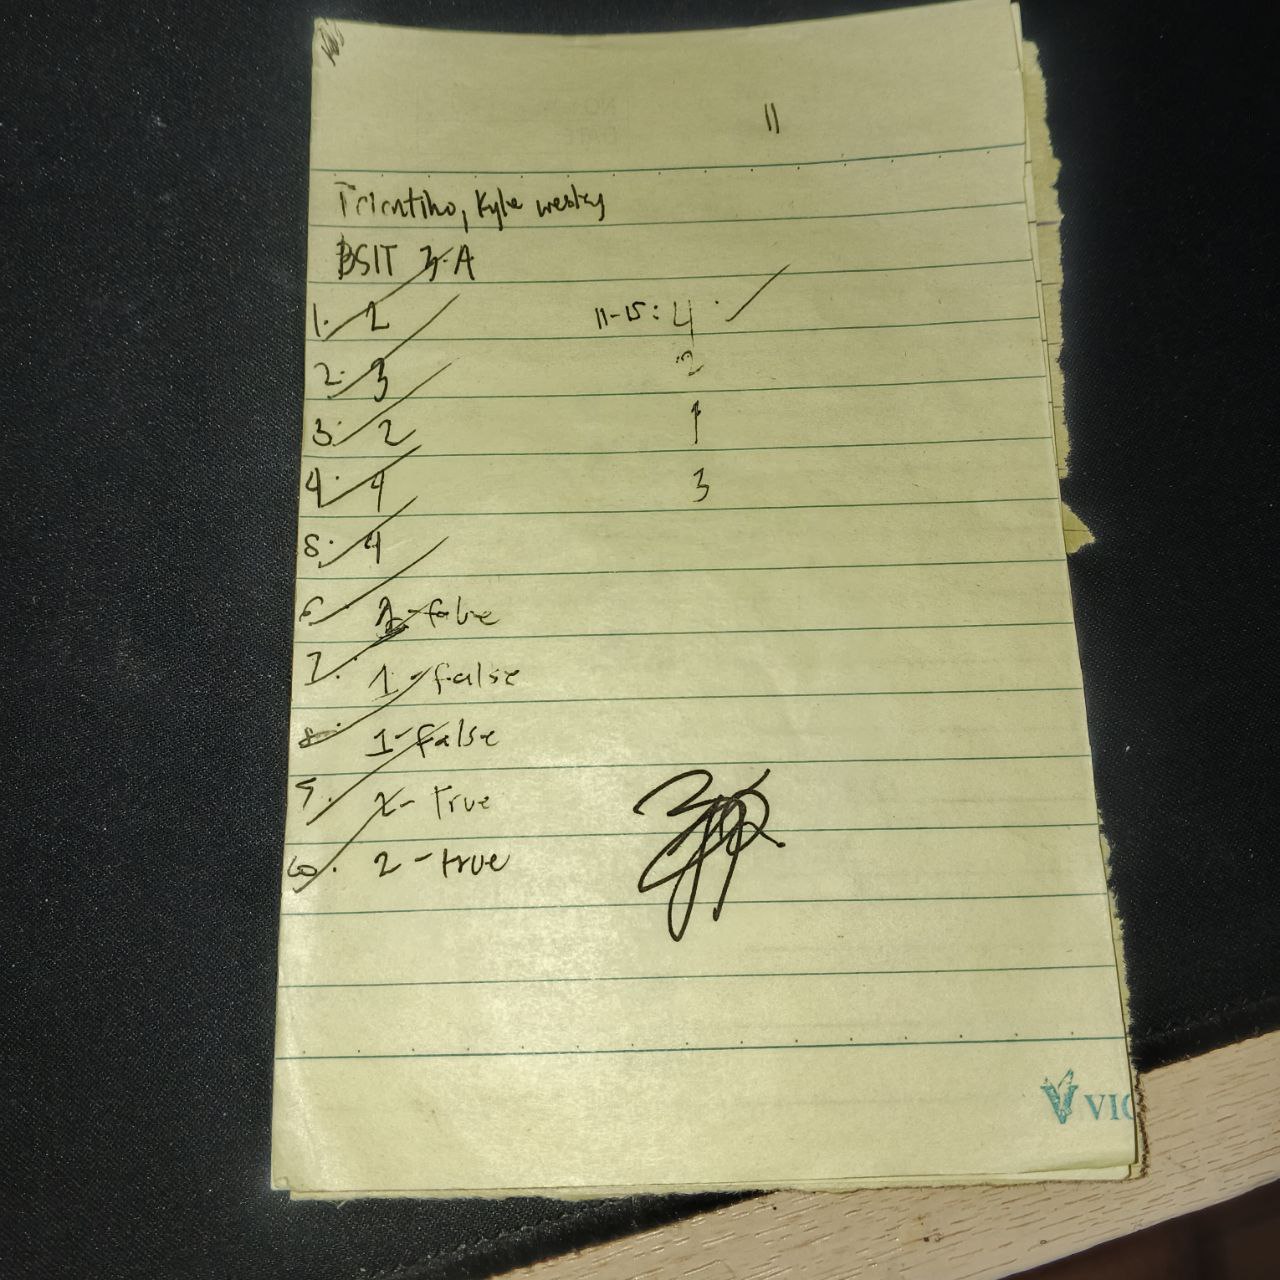 11
Tolentino, Kyle wesley
BSIT 3-A
1. 2
2. 3
3. 2
4. 4
5. 4
6. 2-false
7. 1-false
8. 1-false
9. 2-True
10. 2-true
11-15: 4
2
1
3
VIC